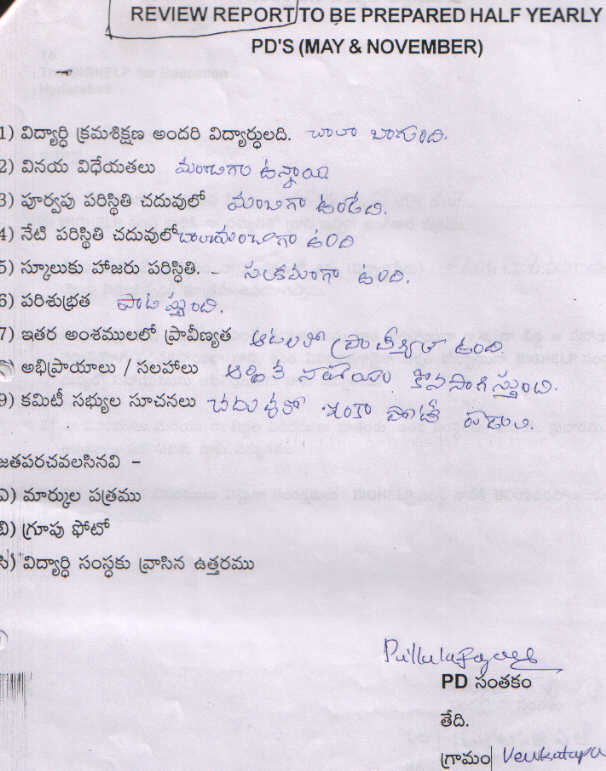 REVIEW REPORT TO BE PREPARED HALF YEARLY
PD'S (MAY & NOVEMBER)
1) విద్యార్ధి క్రమశిక్షణ అందరి విద్యార్థులది. చాలా బాగుంది.
2) వినయ విధేయతలు మంచిగా ఉన్నాయి
3) పూర్వపు పరిస్థితి చదువులో మంచిగా ఉండేది.
4) నేటి పరిస్థితి చదువులో చాలామంచిగా ఉంది
5) స్కూలుకు హాజరు పరిస్థితి. – సక్రమంగా ఉంది.
6) పరిశుభ్రత పాటిస్తుంది.
7) ఇతర అంశములలో ప్రావీణ్యత ఆటలలో ప్రావీణ్యత ఉంది.
అభిప్రాయాలు / సలహాలు ఆర్థిక సహాయం కొనసాగిస్తుంది.
9) కమిటీ సభ్యుల సూచనలు చదువులో ఇంకా పోటీ పడాలి.
జతపరచవలసినవి –
ఎ) మార్కుల పత్రము
బి) గ్రూపు ఫోటో
సి) విద్యార్ధి సంస్థకు వ్రాసిన ఉత్తరము
PD సంతకం
తేది.
గ్రామం Venkatapu